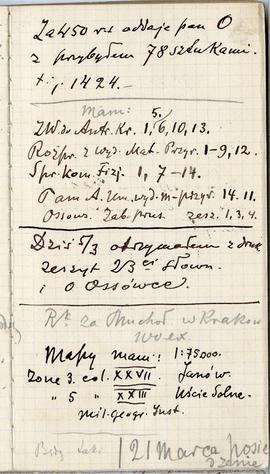 Za 450 rs oddaje pan O
z przybyłem 78 sztukami.
t.j. 1424.–
Mam: 5.
ZW. do Antr. Kr. 1, 6, 10, 13.
Rozpr. z wyd. Mat. Przyr. 1–9, 12.
Spr. kom. Fizj. 1, 7–14.
Pam A. Um. wyd. m-przyr. 14. 11.
Ossows. Zab. prus. zesz. 1, 3, 4.
Dziś 5/3 otrzymałem z druk
zeszyt 2/3 ci Słown.
i o Ossówce.
za w Krakow
100 ex.
Mapy mam: 1:75000.
Zone 3. col. XXVII. Janów.
" 5 " XXIII Uście Solne.
Mil. geogr. Inst.
21 Marca posie
dzenie